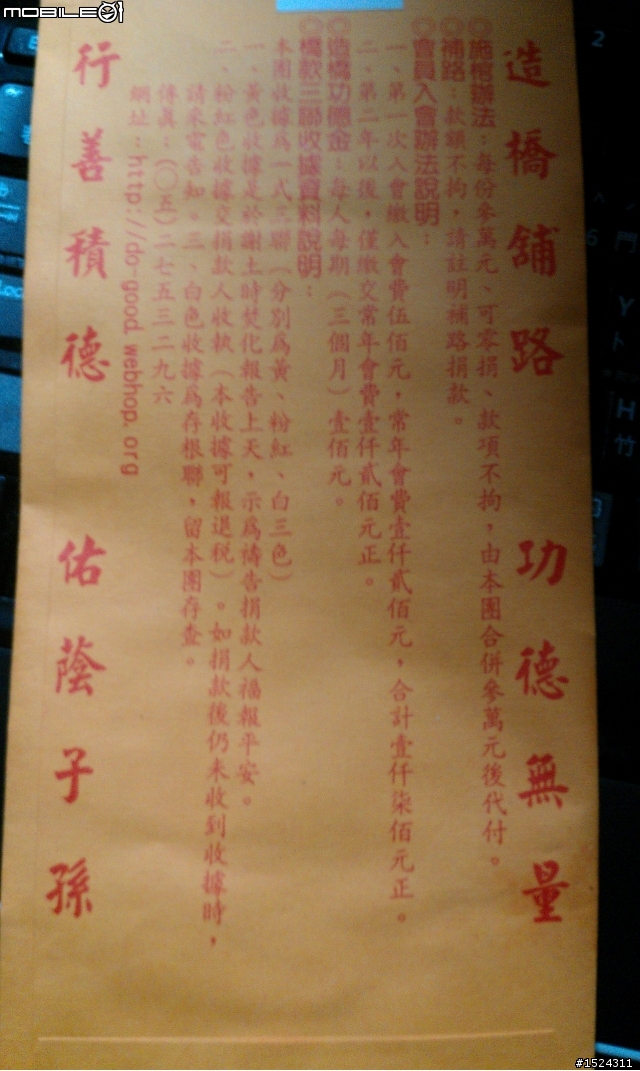 造橋舖路 功德無量
◎施棺辦法：每份參萬元、可零捐、款項不拘，由本團合併參萬元後代付。
◎補路：款額不拘，請註明補路捐款。
◎會員入會辦法說明：
一、第一次入會繳入會費伍佰元，常年會費壹仟貳佰元，合計壹仟柒佰元正。
二、第二年以後，僅繳交常年會費壹仟貳佰元正。
◎造橋功德金：每人每期（三個月）壹佰元。
◎橋款三聯收據資料說明：
本團收據為一式三聯（分別為黃、粉紅、白三色）
一、黃色收據是於謝土時焚化報告上天，示為禱告捐款人福報平安。
二、粉紅色收據交捐款人收執（本收據可報退稅）。如捐款後仍未收到收據時，
請來電告知。三、白色收據為存根聯，留本團存查。
傳真：（○五）二七五三二九六
網址：http://do-good.webhop.org
行善積德 佑蔭子孫
MOBILE01
#1524311